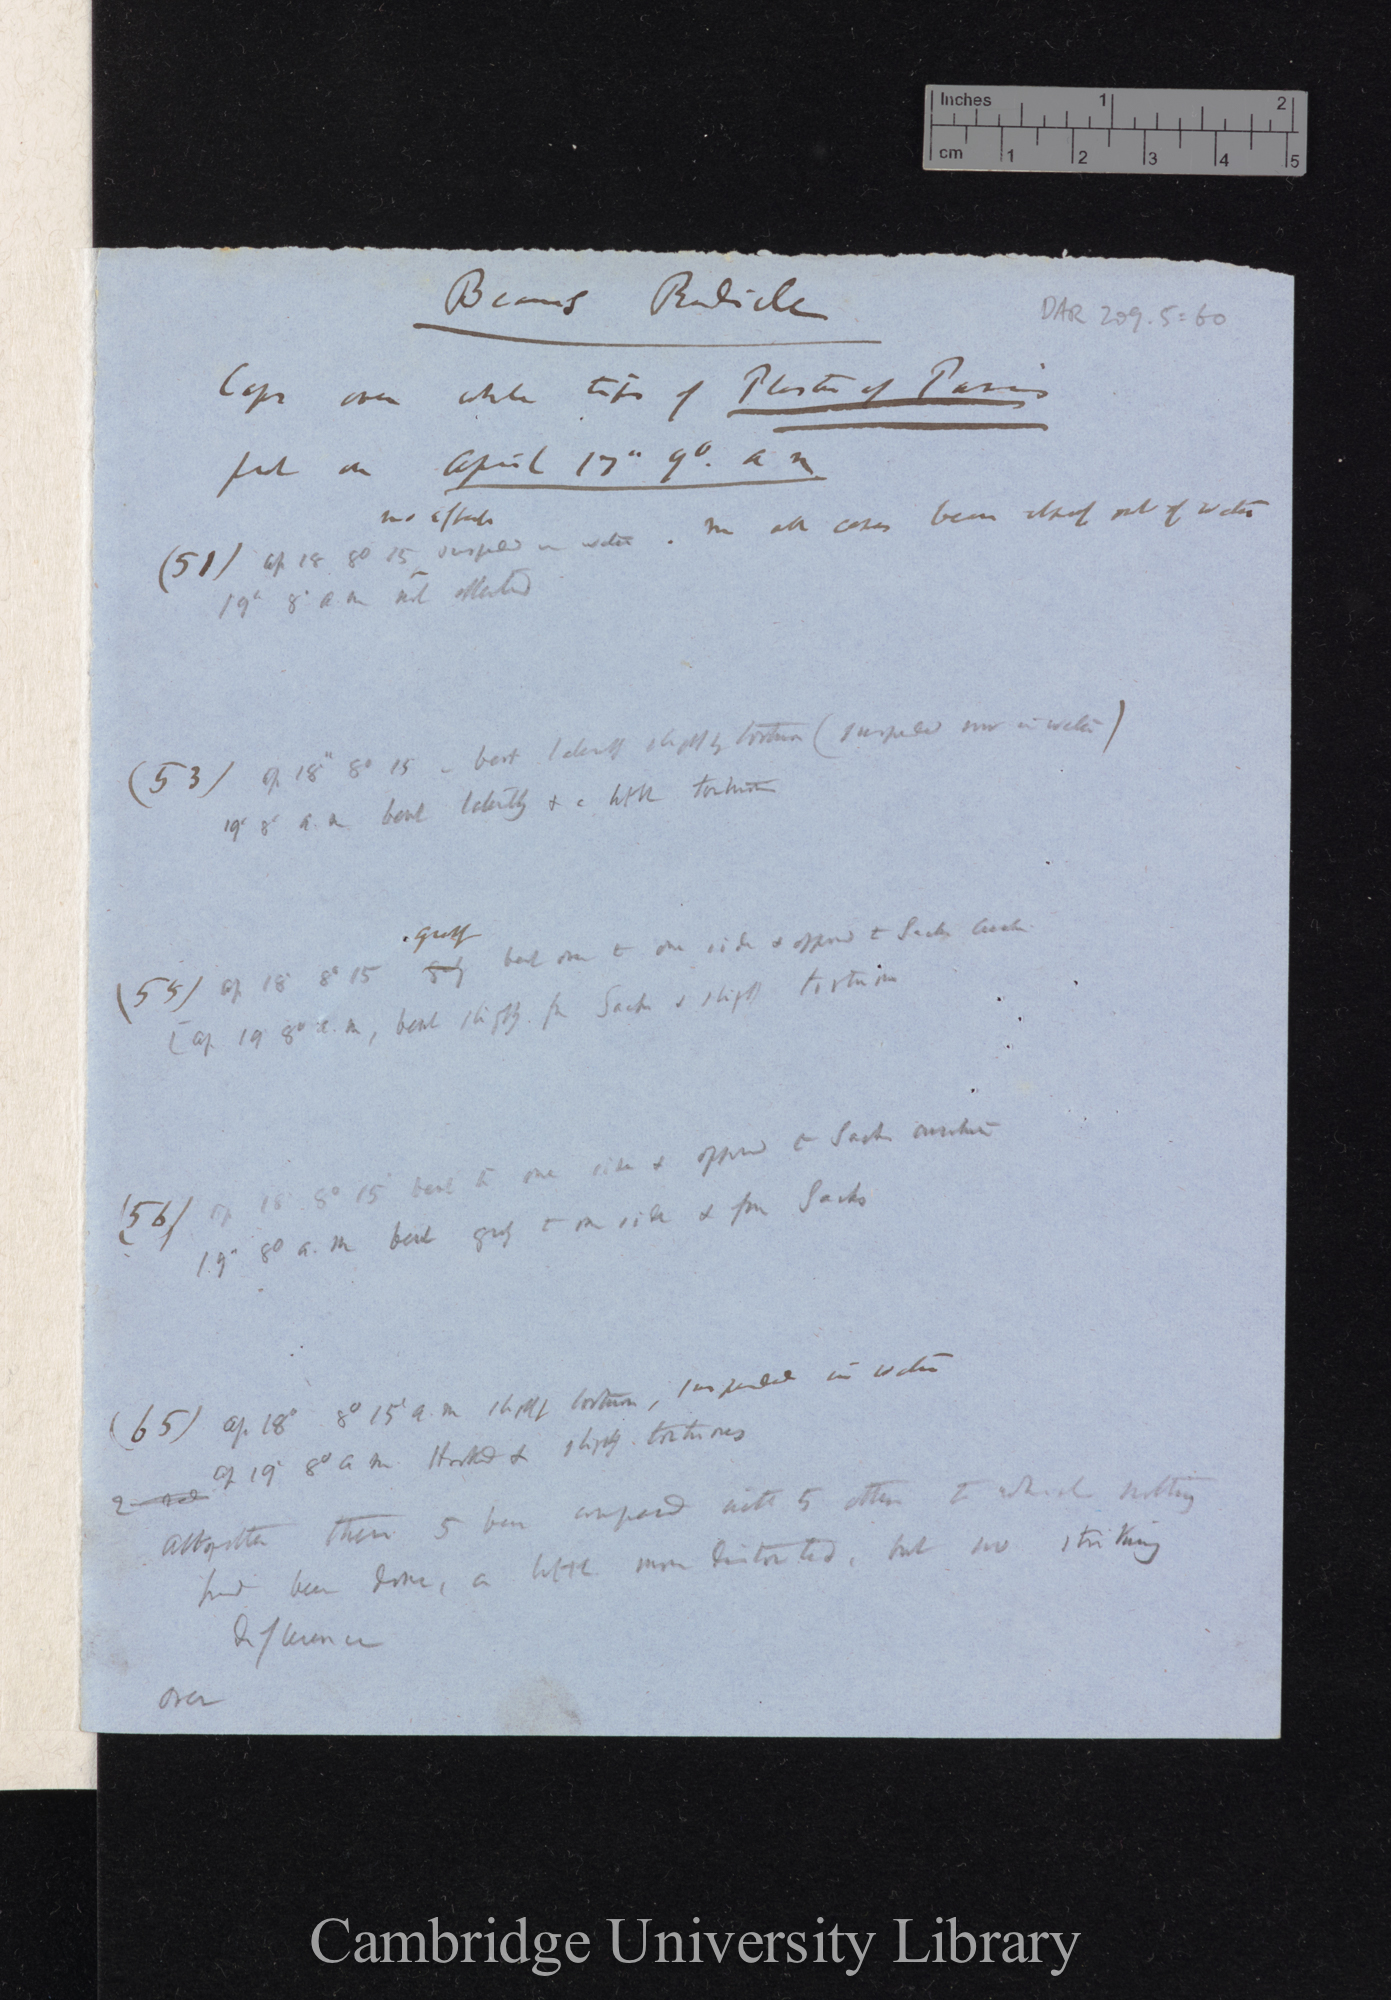 Inches 1 2
cm 1 2 3 4 5
Beans Radicle
DAR 209.5:60
Caps over whole tips of Plaster of Paris
put on April 17th 9° a m
no effects
(51) Ap 18 8° 15 suspended in water. In all cases bean itself out of water
19th 8° a m not affected
(53) Ap 18th 8° 15 bent laterally slightly tortuous (suspended now in water)
19th 8° a.m bent laterally & a little tortuous
greatly
Ap 18 8° 15 bent over to one side & opposed to Sachs
[Ap 19 8° a.m, bent slightly from Sachs & slightly tortuous
(56) Ap 18 8° 15' bent to one side & opposed to Sachs curvature
19th 8° a.m bent greatly to one side & from Sachs
(65) Ap. 18° 8° 15' a.m slightly tortuous, suspended in water
Ap 19th 8° a m Hooked & slightly tortuous
altogether these 5 been compared with 5 others to which nothing
had been done, a little more distorted, but no striking
difference
over
Cambridge University Library